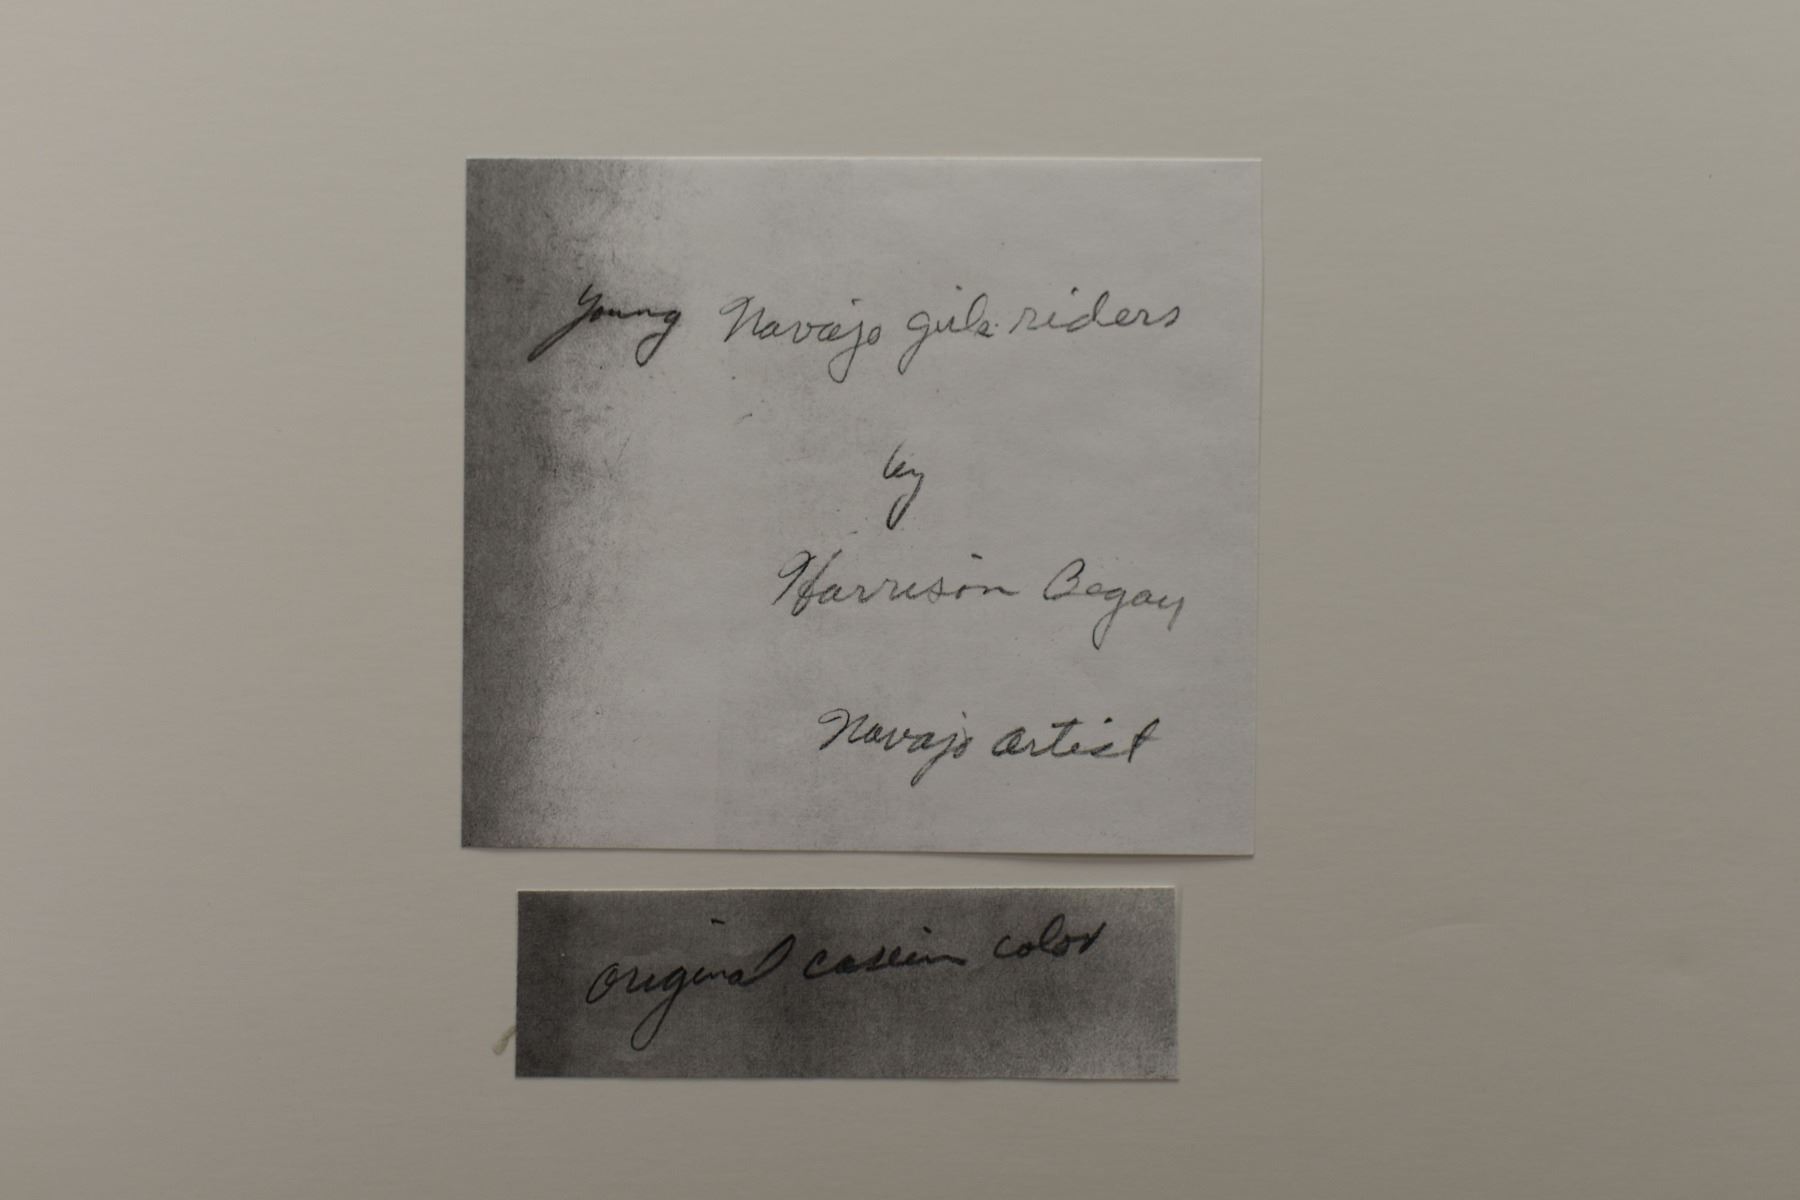 Young Navajo girls riders
by
Harrison Begay
Navajo artist
original casein color